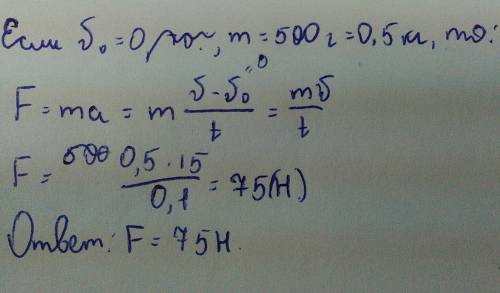 Если υ₀ = 0 м/с, m = 500 г = 0,5 кг, то:
F = ma = m (υ - υ₀)/t = mυ/t
F = (0,5 · 15)/0,1 = 75(Н)
Ответ: F = 75 Н.